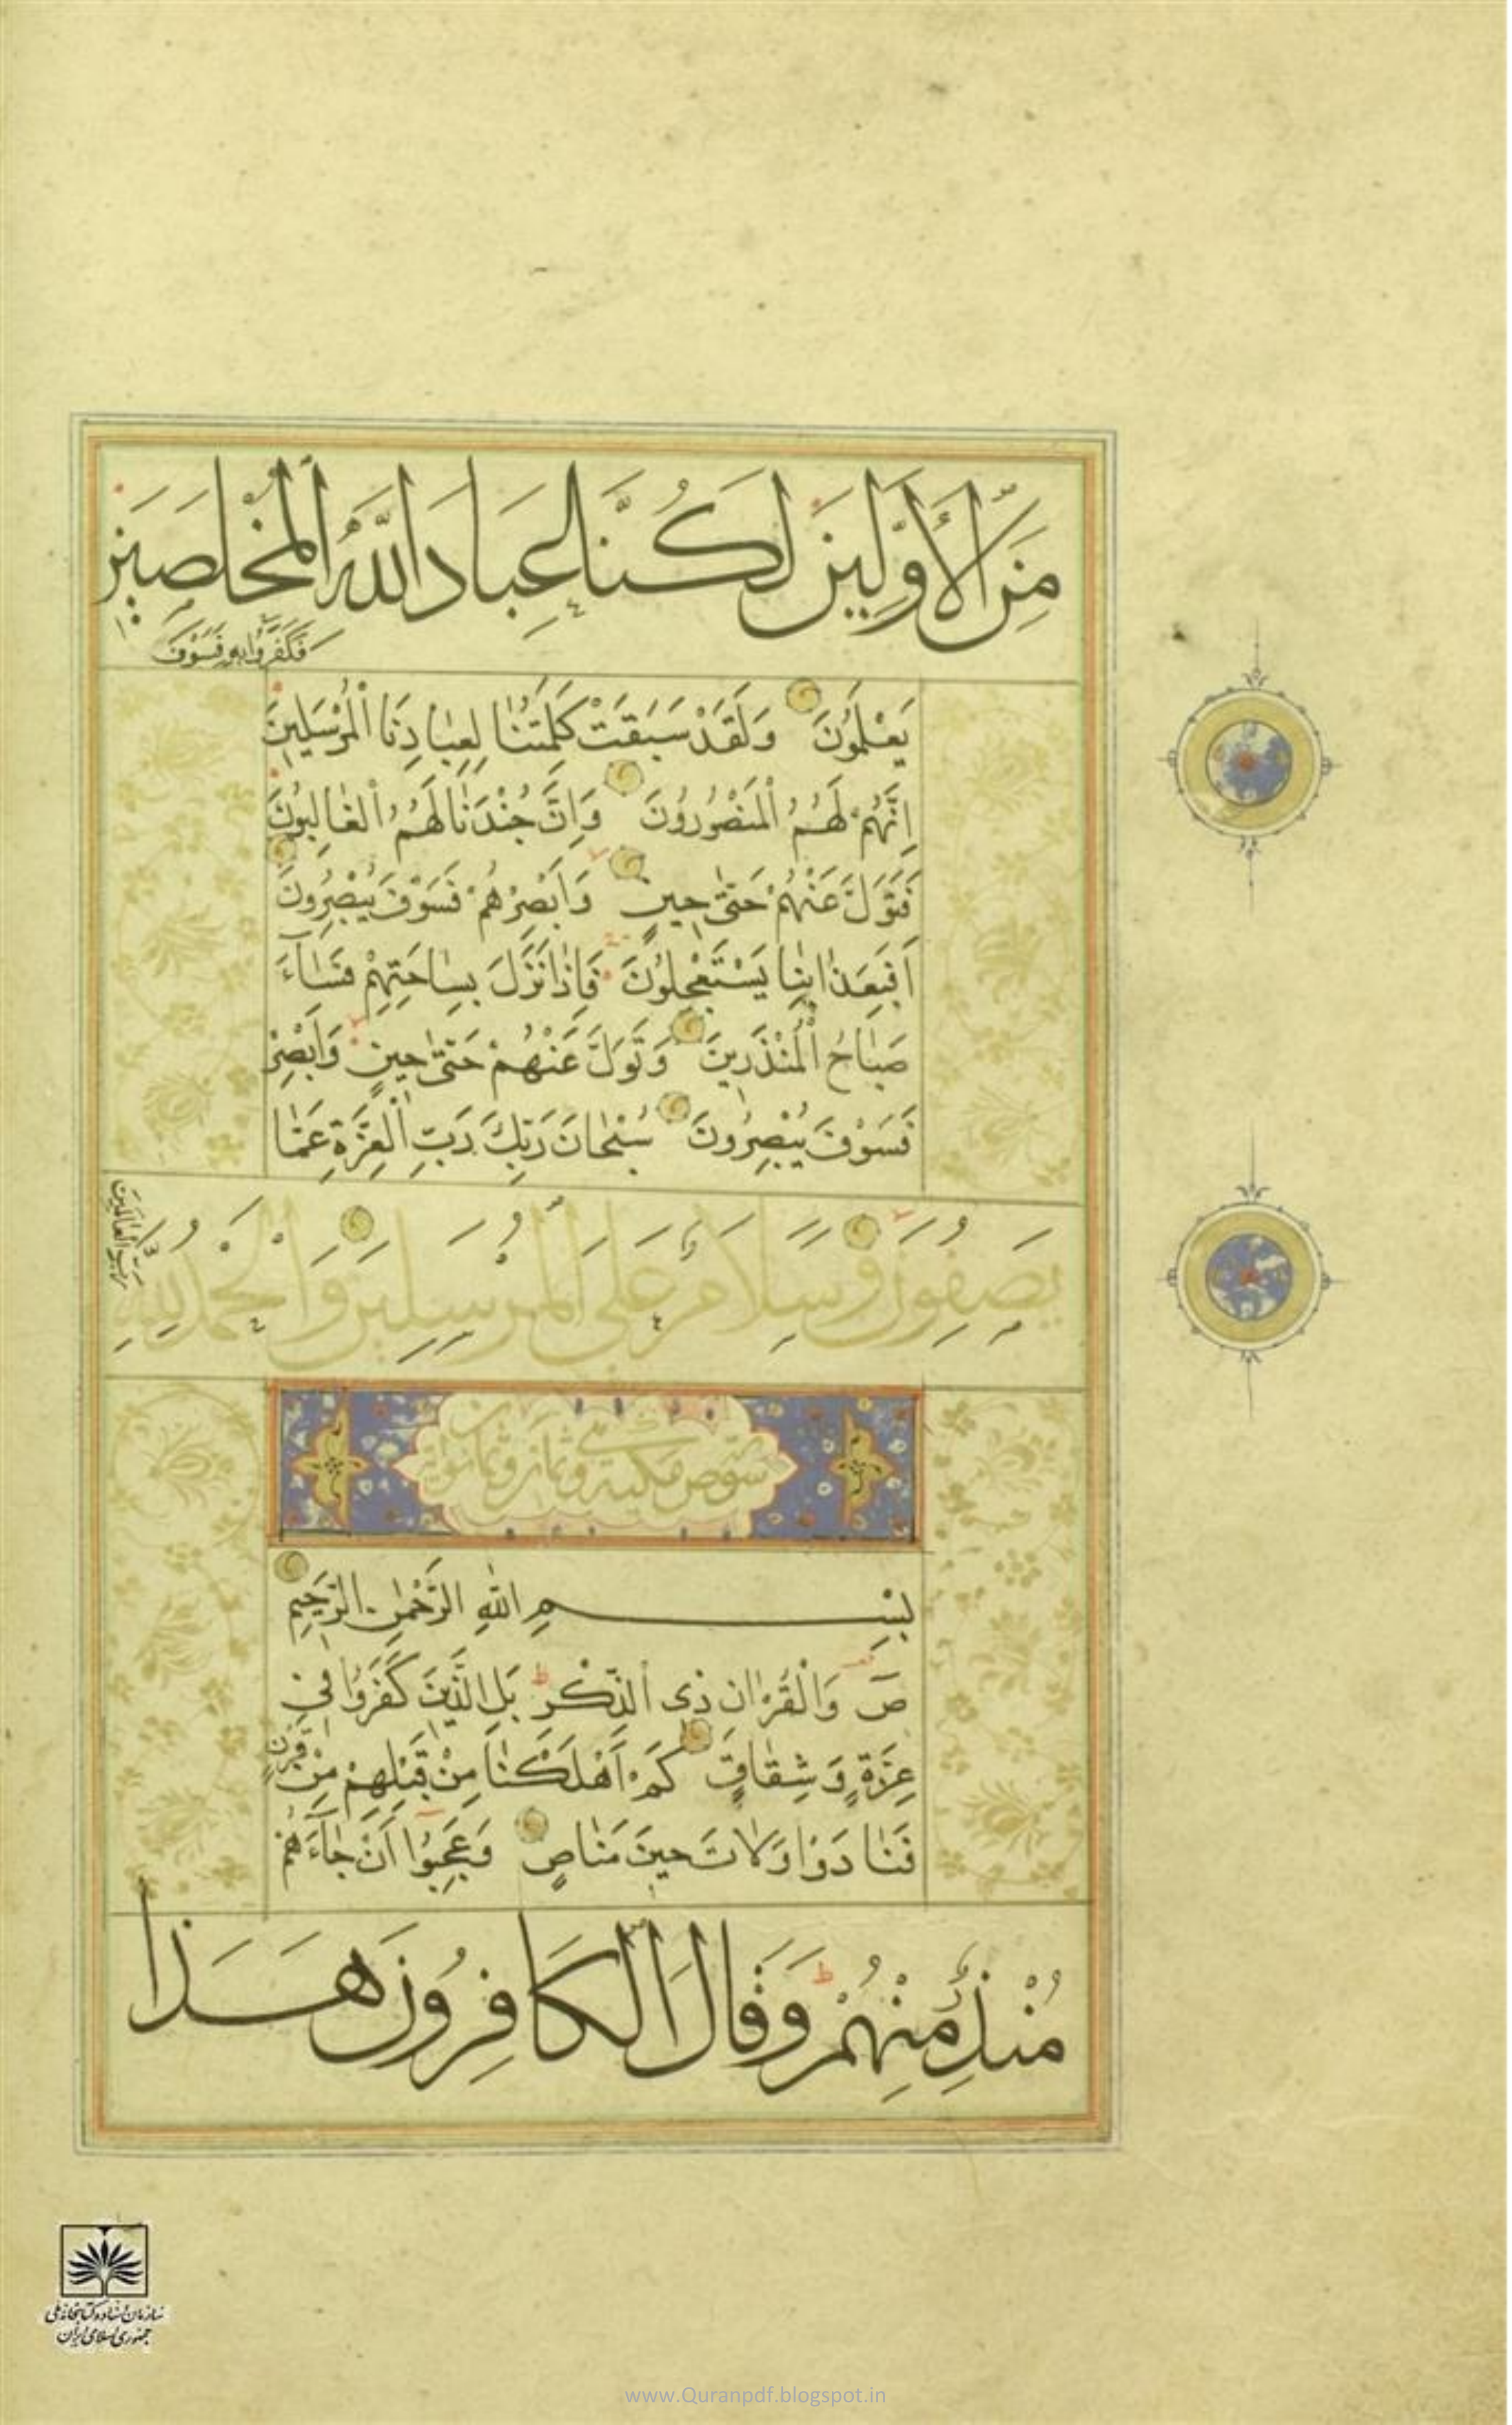 مِنَ الْأَوَّلِينَ لَكُنَّا عِبَادَ اللَّهِ الْمُخْلَصِينَ
فَكَفَرُوا بِهِ فَسَوْفَ
يَعْلَمُونَ وَلَقَدْ سَبَقَتْ كَلِمَتُنَا لِعِبَادِنَا الْمُرْسَلِينَ
إِنَّهُمْ لَهُمُ الْمَنْصُورُونَ وَإِنَّ جُنْدَنَا لَهُمُ الْغَالِبُونَ
فَتَوَلَّ عَنْهُمْ حَتَّىٰ حِينٍ وَأَبْصِرْهُمْ فَسَوْفَ يُبْصِرُونَ
أَفَبِعَذَابِنَا يَسْتَعْجِلُونَ فَإِذَا نَزَلَ بِسَاحَتِهِمْ فَسَاءَ
صَبَاحُ الْمُنْذَرِينَ وَتَوَلَّ عَنْهُمْ حَتَّىٰ حِينٍ وَأَبْصِرْ
فَسَوْفَ يُبْصِرُونَ سُبْحَانَ رَبِّكَ رَبِّ الْعِزَّةِ عَمَّا
يَصِفُونَ وَسَلَامٌ عَلَى الْمُرْسَلِينَ وَالْحَمْدُ لِلَّهِ
رَبِّ الْعَالَمِينَ
سورة ص مكية وهي ثمان وثمانون آية
بِسْمِ اللَّهِ الرَّحْمَٰنِ الرَّحِيمِ
صٓ وَالْقُرْآنِ ذِي الذِّكْرِ بَلِ الَّذِينَ كَفَرُوا فِي
عِزَّةٍ وَشِقَاقٍ كَمْ أَهْلَكْنَا مِنْ قَبْلِهِمْ مِنْ قَرْنٍ
فَنَادَوْا وَلَاتَ حِينَ مَنَاصٍ وَعَجِبُوا أَنْ جَاءَهُمْ
مُنْذِرٌ مِنْهُمْ وَقَالَ الْكَافِرُونَ هَٰذَا
سازمان اسناد و کتابخانه ملی
جمهوری اسلامی ایران
www.Quranpdf.blogspot.in